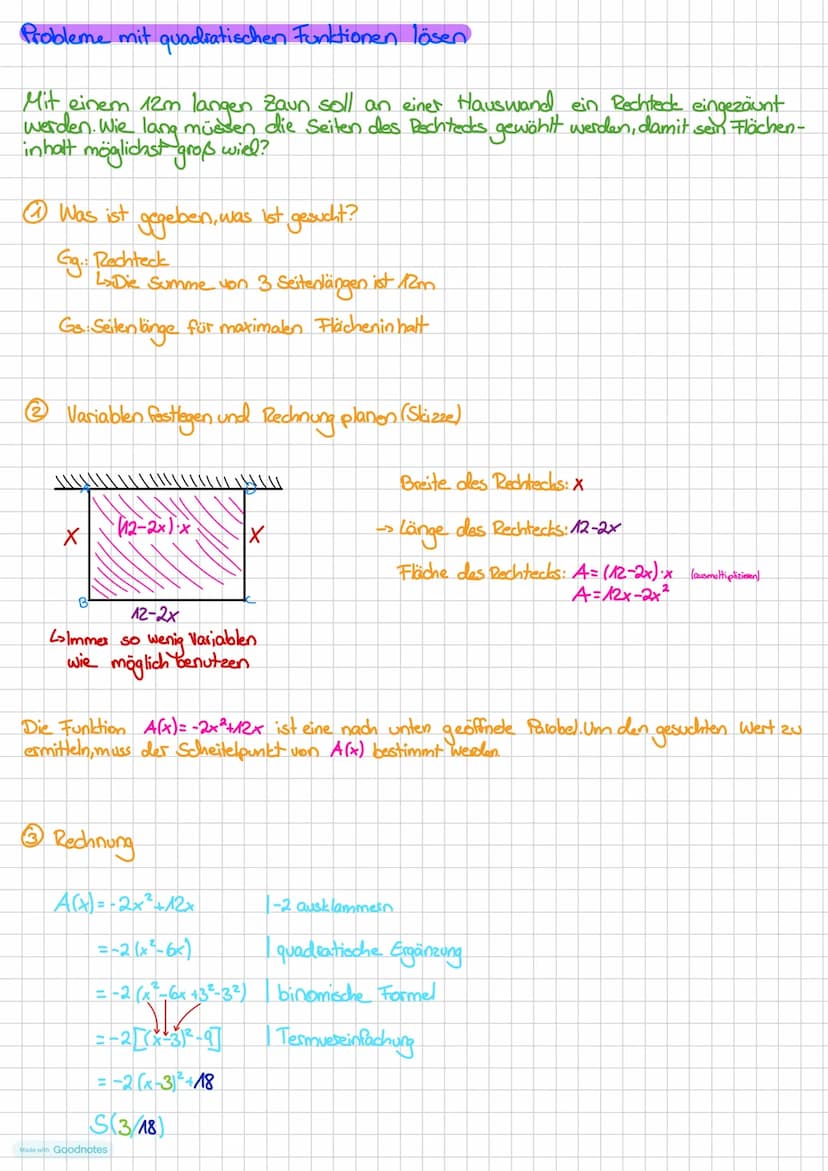 Probleme mit quadratischen Funktionen lösen
Mit einem 12m langen Zaun soll an einer Hauswand ein Rechteck eingezäunt
werden. Wie lang müssen die Seiten des Rechtecks gewählt werden, damit sein Flächen-
inhalt möglichst groß wird?
① Was ist gegeben, was ist gesucht?
Gg.: Rechteck
↳ Die Summe von 3 Seitenlängen ist 12m
Gs.: Seitenlänge für maximalen Flächeninhalt
② Variablen festlegen und Rechnung planen (Skizze)
Breite des Rechtecks: x
x (12-2x)·x x
→ Länge des Rechtecks: 12-2x
Fläche des Rechtecks: A = (12-2x)·x (ausmultiplizieren)
A = 12x-2x²
B C
12-2x
↳ Immer so wenig Variablen
wie möglich benutzen
Die Funktion A(x) = -2x²+12x ist eine nach unten geöffnete Parabel. Um den gesuchten Wert zu
ermitteln, muss der Scheitelpunkt von A(x) bestimmt werden
③ Rechnung
A(x) = -2x²+12x | -2 ausklammern
= -2(x²-6x) | quadratische Ergänzung
= -2(x²-6x+3²-3²) | binomische Formel
= -2[(x-3)²-9] | Termvereinfachung
= -2(x-3)²+18
S(3/18)
Made with Goodnotes